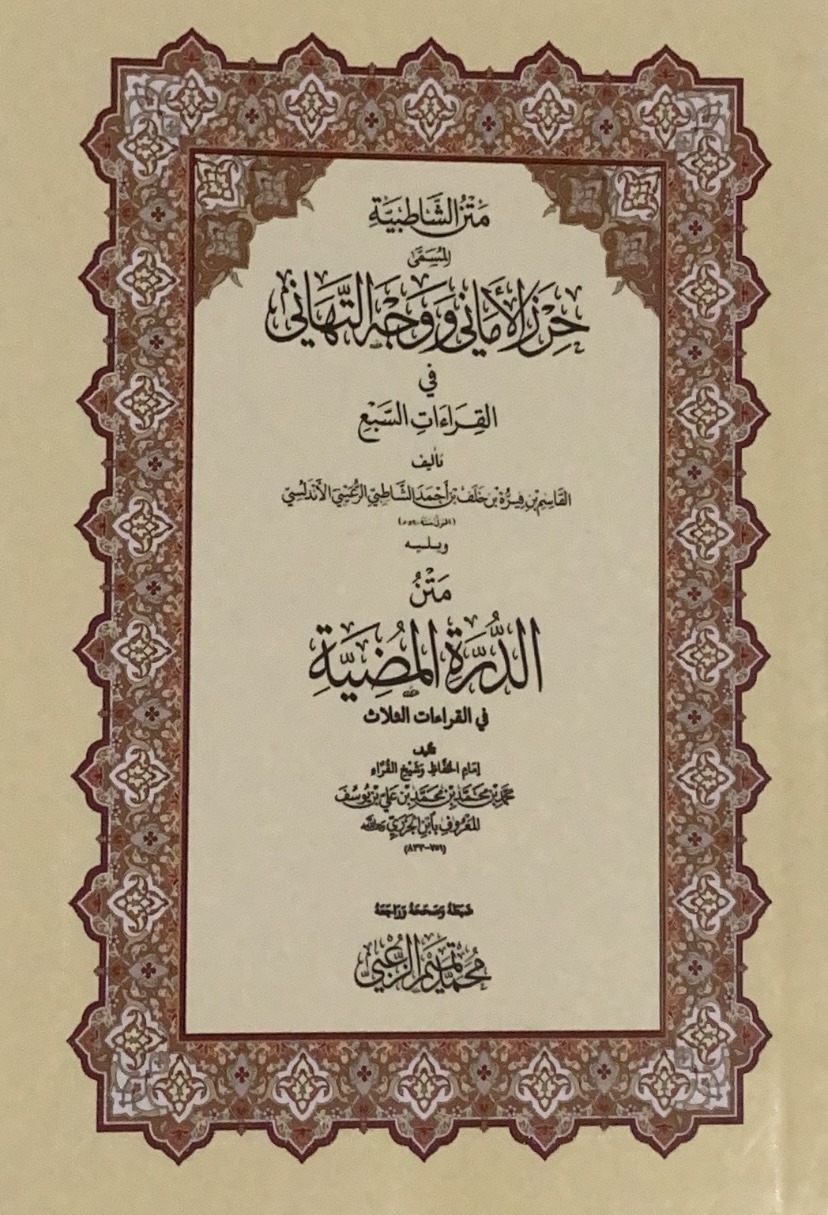 مَتْنُ الشَّاطِبِيَّةِ
المُسَمَّى
حِرْزَ الأَمَانِي وَوَجْهَ التَّهَانِي
فِي
القِرَاءَاتِ السَّبْعِ
تأليف
القَاسِمِ بْنِ فِيرُّهْ بْنِ خَلَفِ بْنِ أَحْمَدَ الشَّاطِبِيِّ الرُّعَيْنِيِّ الأَنْدَلُسِيِّ
(المتوفى سنة ٥٩٠ هـ)
ويليه
مَتْنُ
الدُّرَّةِ المُضِيَّةِ
في القراءات الثلاث
تأليف
إمَامِ الحُفَّاظِ وَشَيْخِ القُرَّاءِ
مُحَمَّدِ بْنِ مُحَمَّدِ بْنِ مُحَمَّدِ بْنِ عَلِيِّ بْنِ يُوسُفَ
المَعْرُوفِ بِابْنِ الجَزَرِيِّ رحمه الله
(٧٥١-٨٣٣)
ضَبَطَهُ وَصَحَّحَهُ وَرَاجَعَهُ
مُحَمَّد تَمِيم الزُّعْبِيّ